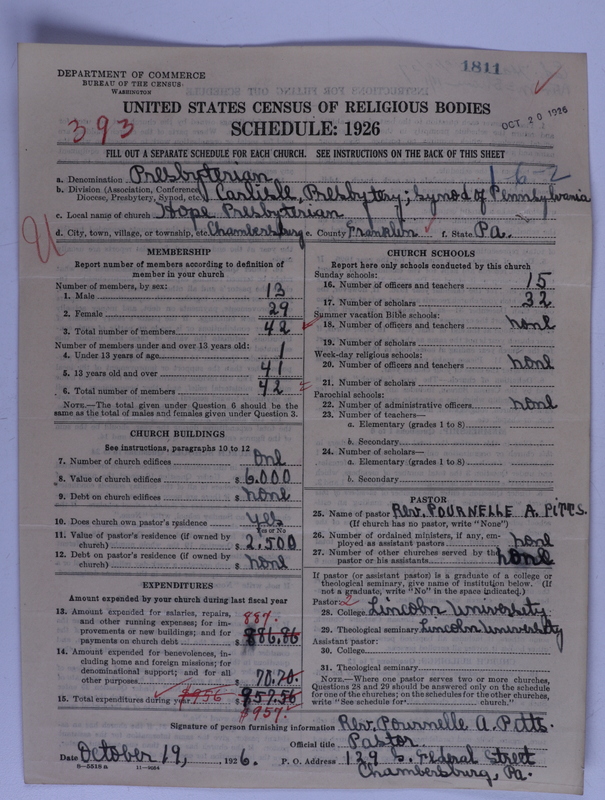 1811
DEPARTMENT OF COMMERCE
BUREAU OF THE CENSUS
WASHINGTON
UNITED STATES CENSUS OF RELIGIOUS BODIES
OCT 20 1926
393
SCHEDULE: 1926
FILL OUT A SEPARATE SCHEDULE FOR EACH CHURCH. SEE INSTRUCTIONS ON THE BACK OF THIS SHEET
1-6-2
a. Denomination Presbyterian
b. Division (Association, Conference, Diocese, Presbytery, Synod, etc.) Carlisle, Presbytery; Synod of Pennsylvania
c. Local name of church Hope Presbyterian
d. City, town, village, or township, etc. Chambersburg e. County Franklin f. State Pa.
MEMBERSHIP
Report number of members according to definition of
member in your church
Number of members, by sex:
1. Male 13
2. Female 29
3. Total number of members 42
Number of members under and over 13 years old:
4. Under 13 years of age 1
5. 13 years old and over 41
6. Total number of members 42
NOTE.—The total given under Question 6 should be the
same as the total of males and females given under Question 3.
CHURCH BUILDINGS
See instructions, paragraphs 10 to 12
7. Number of church edifices one
8. Value of church edifices $ 6.000
9. Debt on church edifices $ none
10. Does church own pastor's residence yes
Yes or No
11. Value of pastor's residence (if owned by
church) $ 2,500
12. Debt on pastor's residence (if owned by
church) $ none
EXPENDITURES
Amount expended by your church during last fiscal year
13. Amount expended for salaries, repairs,
and other running expenses; for im-
provements or new buildings; and for
payments on church debt $ 886.86
887.
14. Amount expended for benevolences, in-
cluding home and foreign missions; for
denominational support; and for all
other purposes $ 70.70
15. Total expenditures during year $ 957.56
$956
$957.
CHURCH SCHOOLS
Report here only schools conducted by this church
Sunday schools:
16. Number of officers and teachers 15
17. Number of scholars 32
Summer vacation Bible schools:
18. Number of officers and teachers none
19. Number of scholars
Week-day religious schools:
20. Number of officers and teachers none
21. Number of scholars
Parochial schools:
22. Number of administrative officers none
23. Number of teachers—
a. Elementary (grades 1 to 8)
b. Secondary
24. Number of scholars—
a. Elementary (grades 1 to 8)
b. Secondary
PASTOR
25. Name of pastor Rev. POURNELLE A. PITTS.
(If church has no pastor, write "None")
26. Number of ordained ministers, if any, em-
ployed as assistant pastors none
27. Number of other churches served by the
pastor or his assistants none
If pastor (or assistant pastors) is a graduate of a college or
theological seminary, give name of institution below. (If
not a graduate, write "No" in the space indicated.)
Pastor: 2
28. College Lincoln University
29. Theological seminary Lincoln University
Assistant pastor:
30. College
31. Theological seminary
NOTE.—Where one pastor serves two or more churches,
Questions 28 and 29 should be answered only on the schedule
for one of the churches; on the schedules for the other churches,
write "See schedule for church."
Signature of person furnishing information Rev. Pournelle A. Pitts.
Official title Pastor
Date October 19, 1926. P. O. Address 139 S. Federal Street
Chambersburg, Pa.
8—5518 a 11—9664